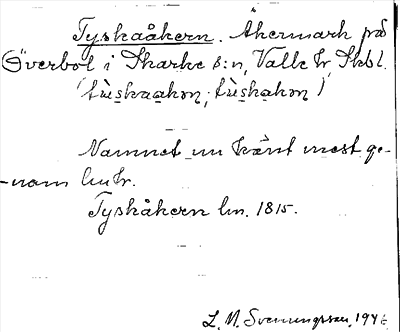 Tyskaåkern. Åkermark på
Överbol i Skarke s:n, Valle hr Skbl.
(tùskaakɒn; tùskakɒn)
Namnet nu känt mest ge-
nom lmhr.
Tyskåkern lm. 1815.
L. M. Svenungsson, 1946